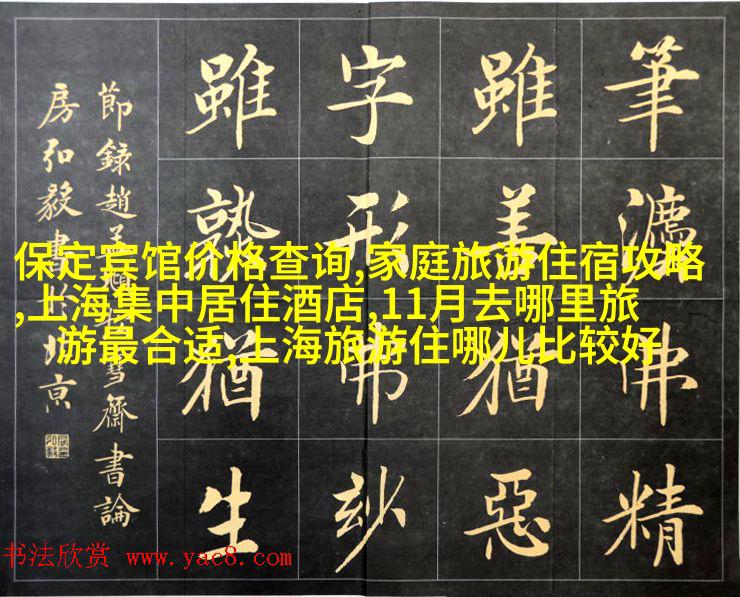 筆灋佛精
雖善猶惡
字形佛玅
雖孰猶生
節錄趙孟頫 齋書論
房弘毅書於北京
保定宾馆价格查询,家庭旅游住宿攻略
,上海集中居住酒店,11月去哪里旅
游最合适,上海旅游住哪儿比较好
书法欣赏 www.yac8.com